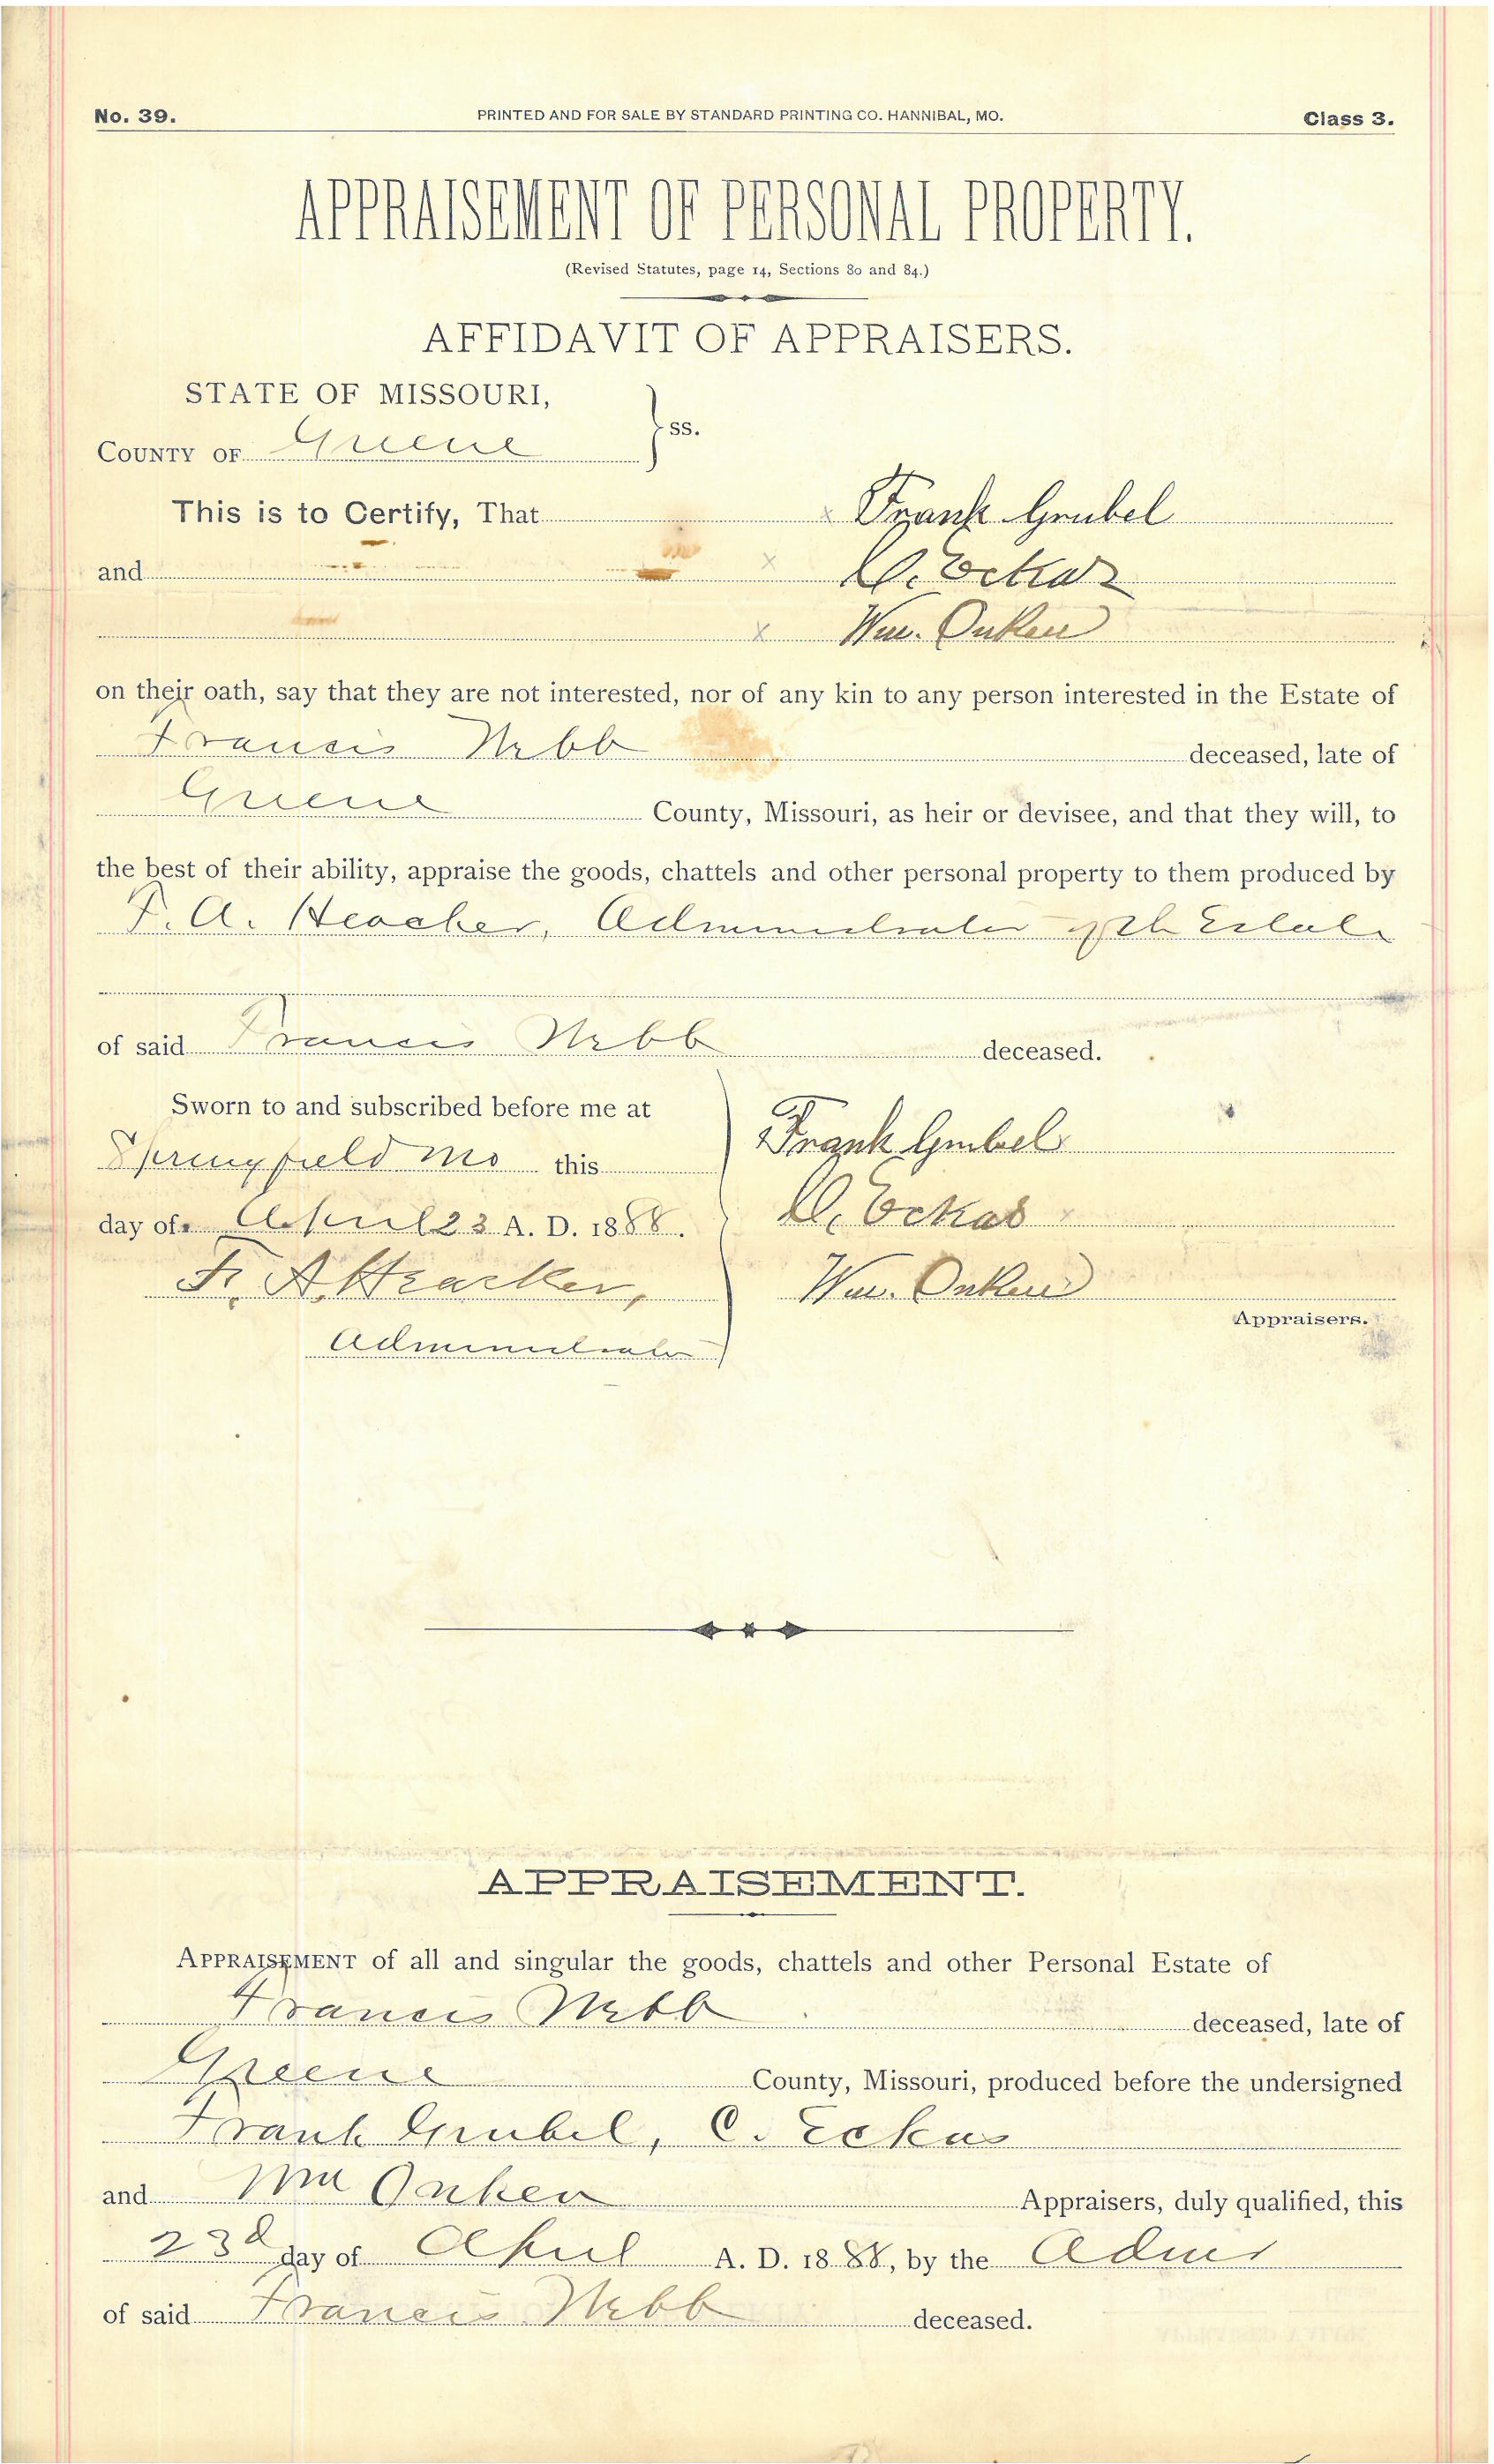 No. 39. PRINTED AND FOR SALE BY STANDARD PRINTING CO. HANNIBAL, MO. Class 3.
APPRAISEMENT OF PERSONAL PROPERTY.
(Revised Statutes, page 14, Sections 80 and 84.)
AFFIDAVIT OF APPRAISERS.
STATE OF MISSOURI,
COUNTY OF Greene ss.
This is to Certify, That x Frank Grubel
and x C. Eckas
x Wm. Onken
on their oath, say that they are not interested, nor of any kin to any person interested in the Estate of
Francis Webb deceased, late of
Greene County, Missouri, as heir or devisee, and that they will, to
the best of their ability, appraise the goods, chattels and other personal property to them produced by
F. A. Heacker, Administrator of th Estate
of said Francis Webb deceased.
Sworn to and subscribed before me at
Springfield Mo this Frank Grubel
day of April 23 A. D. 1888. C. Eckas
F. A. Heacker, Wm. Onken
Appraisers.
Administrator
APPRAISEMENT.
APPRAISEMENT of all and singular the goods, chattels and other Personal Estate of
Francis Webb deceased, late of
Greene County, Missouri, produced before the undersigned
Frank Grubel, C. Eckas
and Wm Onken Appraisers, duly qualified, this
23d day of April A. D. 1888, by the Admr
of said Francis Webb deceased.